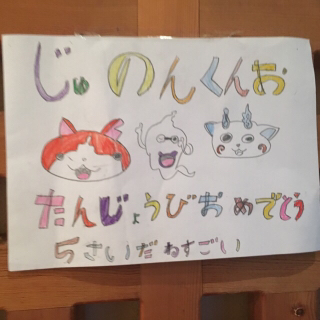 じゅのんくんお
たんじょうびおめでとう
5さいだねすごい